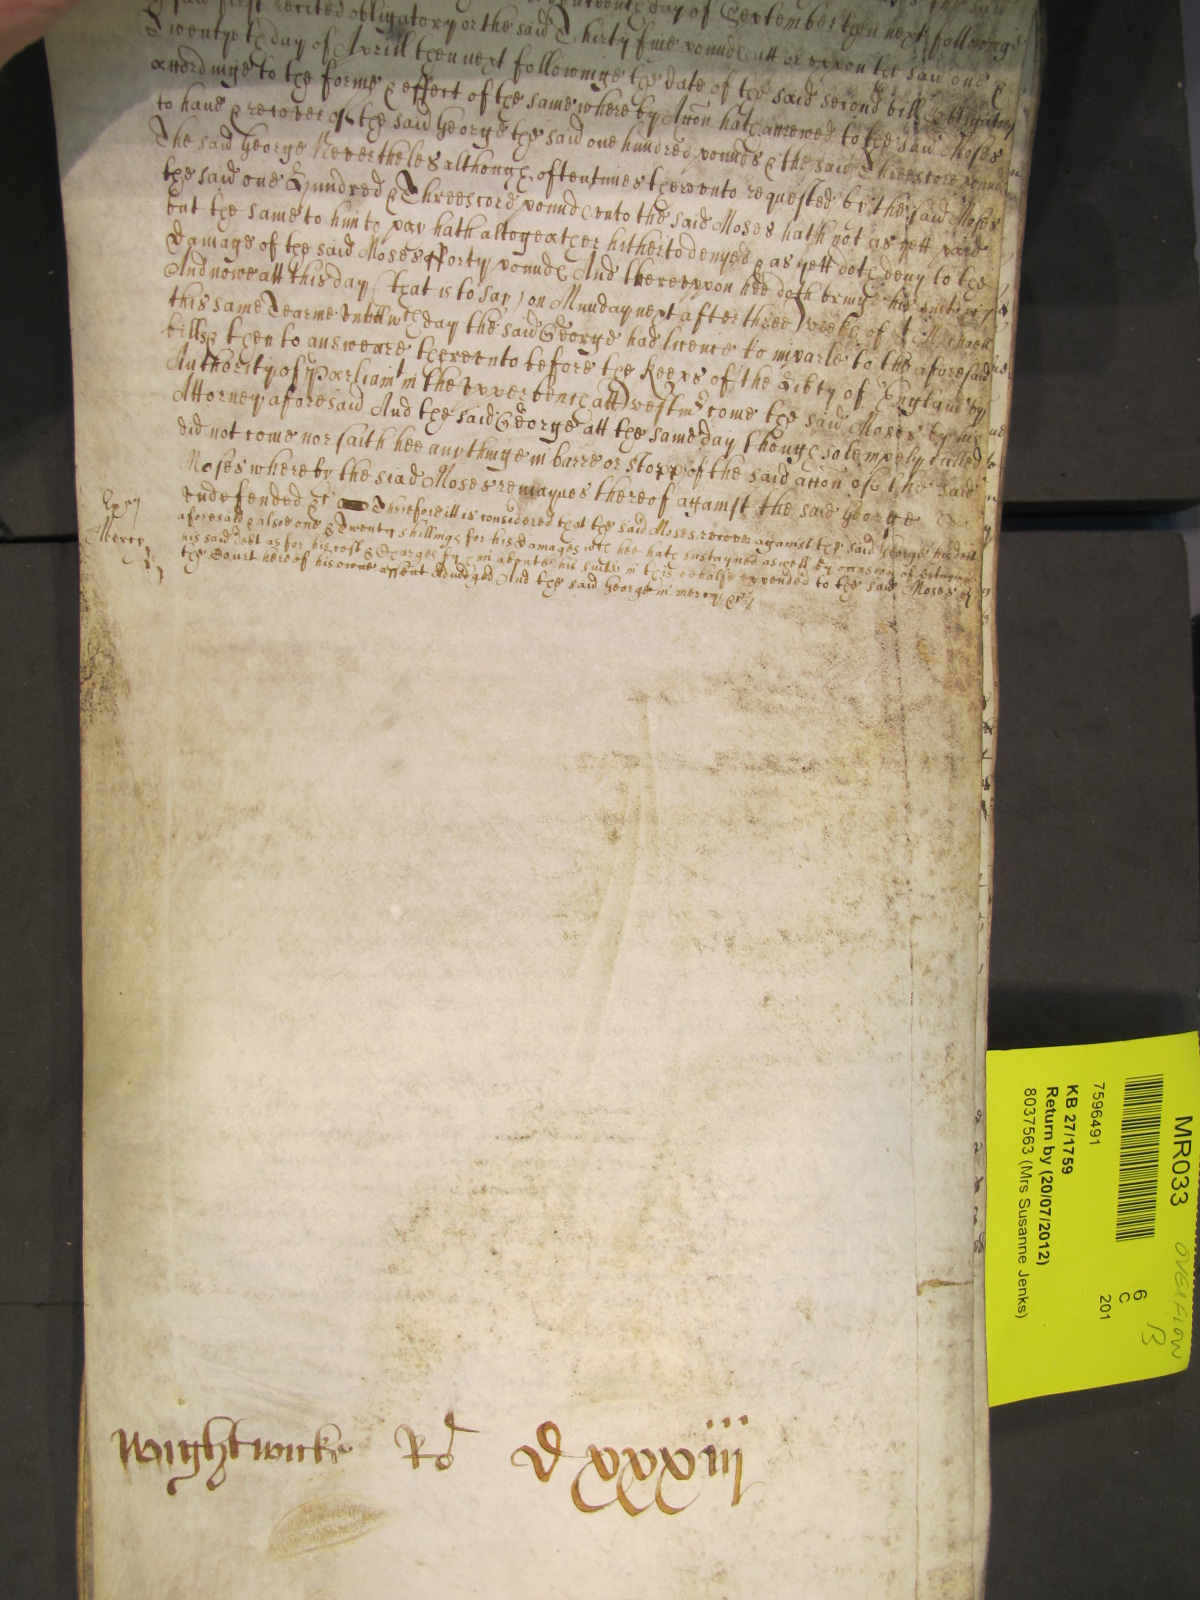 said first recited obligatory or the said Thirty fiue pounds att or vppon the said one &
Twentyeth day of Aprill then next followinge the date of the said second bill obligatory
accordinge to the forme & effect of the same whereby Accon hath accrewed to the said Moses
to haue & recouer of the said George the said one hundred pounds & the said Threescore pounds
The said George Neuertheles although oftentimes therevnto requested by the said Moses
the said one Hundred & Threescore pounds vnto the said Moses hath not as yett paid
but the same to him to pay hath altogeather hitherto denyed & as yett doth deny to the
damage of the said Moses fforty pounds And therevppon hee doth bringe his suite &c
And nowe att this day (that is to say) on Munday next after three weekes of St Michaell
this same Tearme vntill wch day the said George had licence to imparle to the aforesaid
bill & then to answeare therevnto before the Keeps of the Libty of England by
Authority of Parliamt in the vpper bench att Westmr come the said Moses by his
Attorney aforesaid And the said George att the same day though solempnely called
did not come nor saith hee any thinge in barre or stopp of the said accon of the said
Moses whereby the siad Moses remaynes thereof against the said George
vndefended &c Therefore itt is considered that the said Moses recouer against the said George his debt
aforesaid & alsoe one & Twenty shillings for his damages wch hee hath susteyned aswell by occasion of detayninge
his said debt as for his costs & Charges by him aboute his suite in this behalfe expended to the said Moses by
the Court here of his owne assent adiudged And the said George in mercy &c
Mercy
Wightwicke Ro D xxxiij
MR033
OVERFLOW
B
6
C
201
7596491
KB 27/1759
Return by (20/07/2012)
8037563 (Mrs Susanne Jenks)